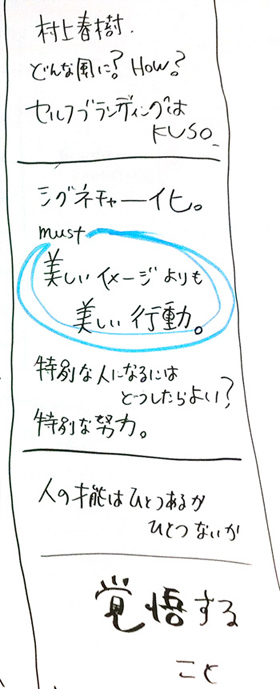 村上春樹.
どんな風に? How?
セルフブランディングは
KUSO_
シグネチャー化。
must
美しいイメージよりも
美しい行動。
特別な人になるには
どうしたらよい?
特別な努力。
人の才能はひとつあるか
ひとつないか
覚悟する
こと